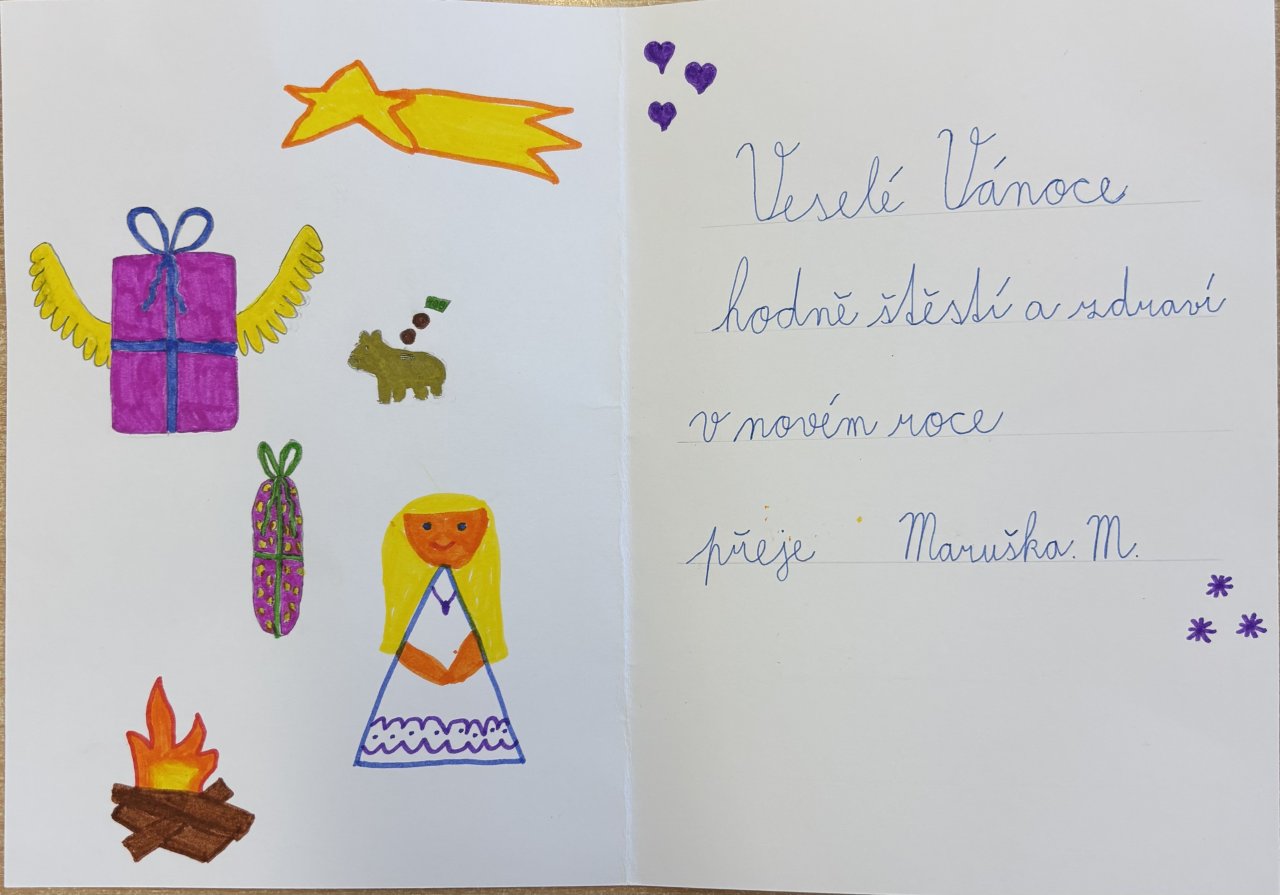 Veselé Vánoce
hodně štěstí a zdraví
v novém roce
přeje Maruška. M.